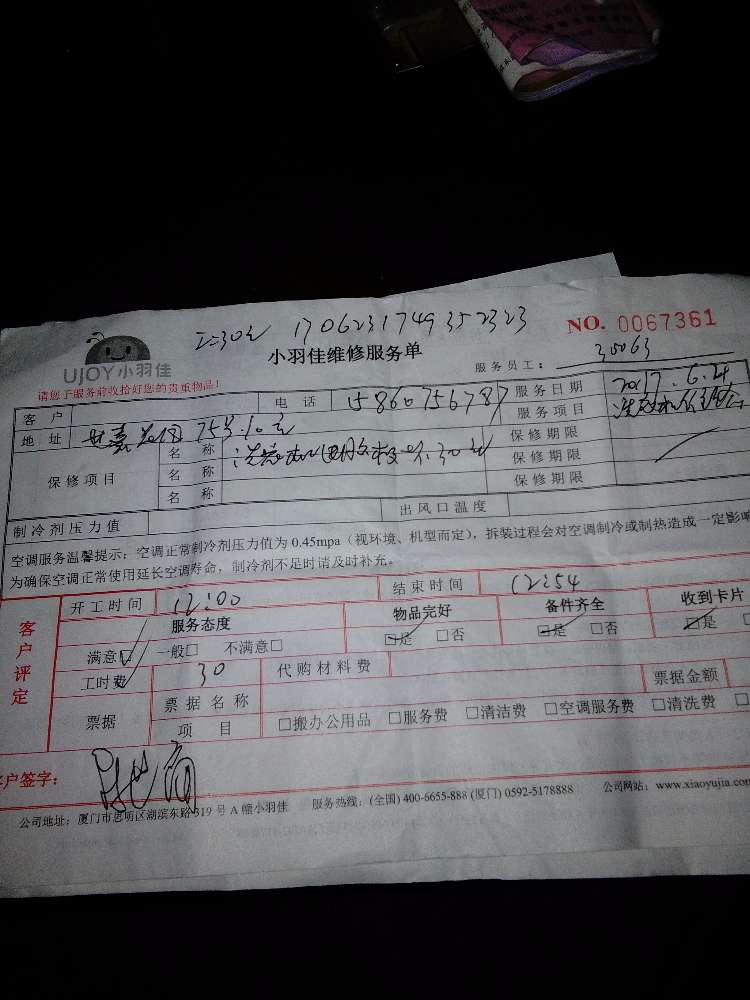 170623174935 2323
NO. 0067361
UJOY小羽佳
小羽佳维修服务单
服务员工： 30063
请您于服务前收拾好您的贵重物品！
客户 电话 15860756787 服务日期 2017.6.24
地址 75号 服务项目
保修项目 名称 30元 保修期限
名称 保修期限
名称 保修期限
制冷剂压力值 出风口温度
空调服务温馨提示：空调正常制冷剂压力值为 0.45mpa（视环境、机型而定），拆装过程会对空调制冷或制热造成一定影响
为确保空调正常使用延长空调寿命，制冷剂不足时请及时补充。
客户评定
开工时间 12:00 结束时间 12:54
服务态度 物品完好 备件齐全 收到卡片
满意□ 一般□ 不满意□ □是 □否 □是 □否 □是
工时费 30 代购材料费
票据 票据名称 票据金额
项目 □搬办公用品 □服务费 □清洁费 □空调服务费 □清洗费
客户签字：
公司地址：厦门市思明区湖滨东路 319 号 A 幢小羽佳 服务热线：(全国) 400-6655-888 (厦门) 0592-5178888 公司网站：www.xiaoyujia.com